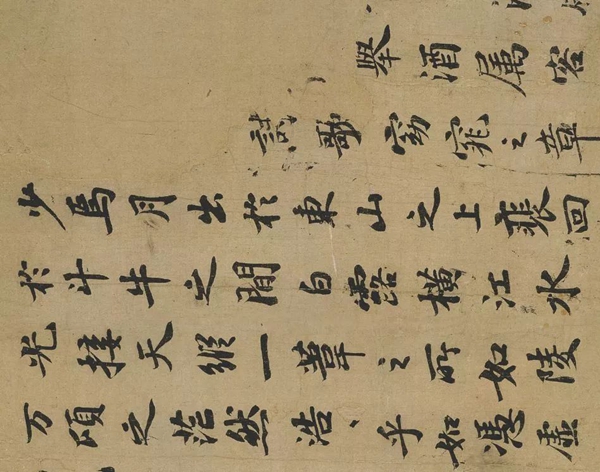 舉酒属客
詩歌窈窕之章
少焉月出於東山之上裴回
於斗牛之間白露橫江水
光接天縱一葦之所如陵
万頃之茫然浩、乎如馮虛